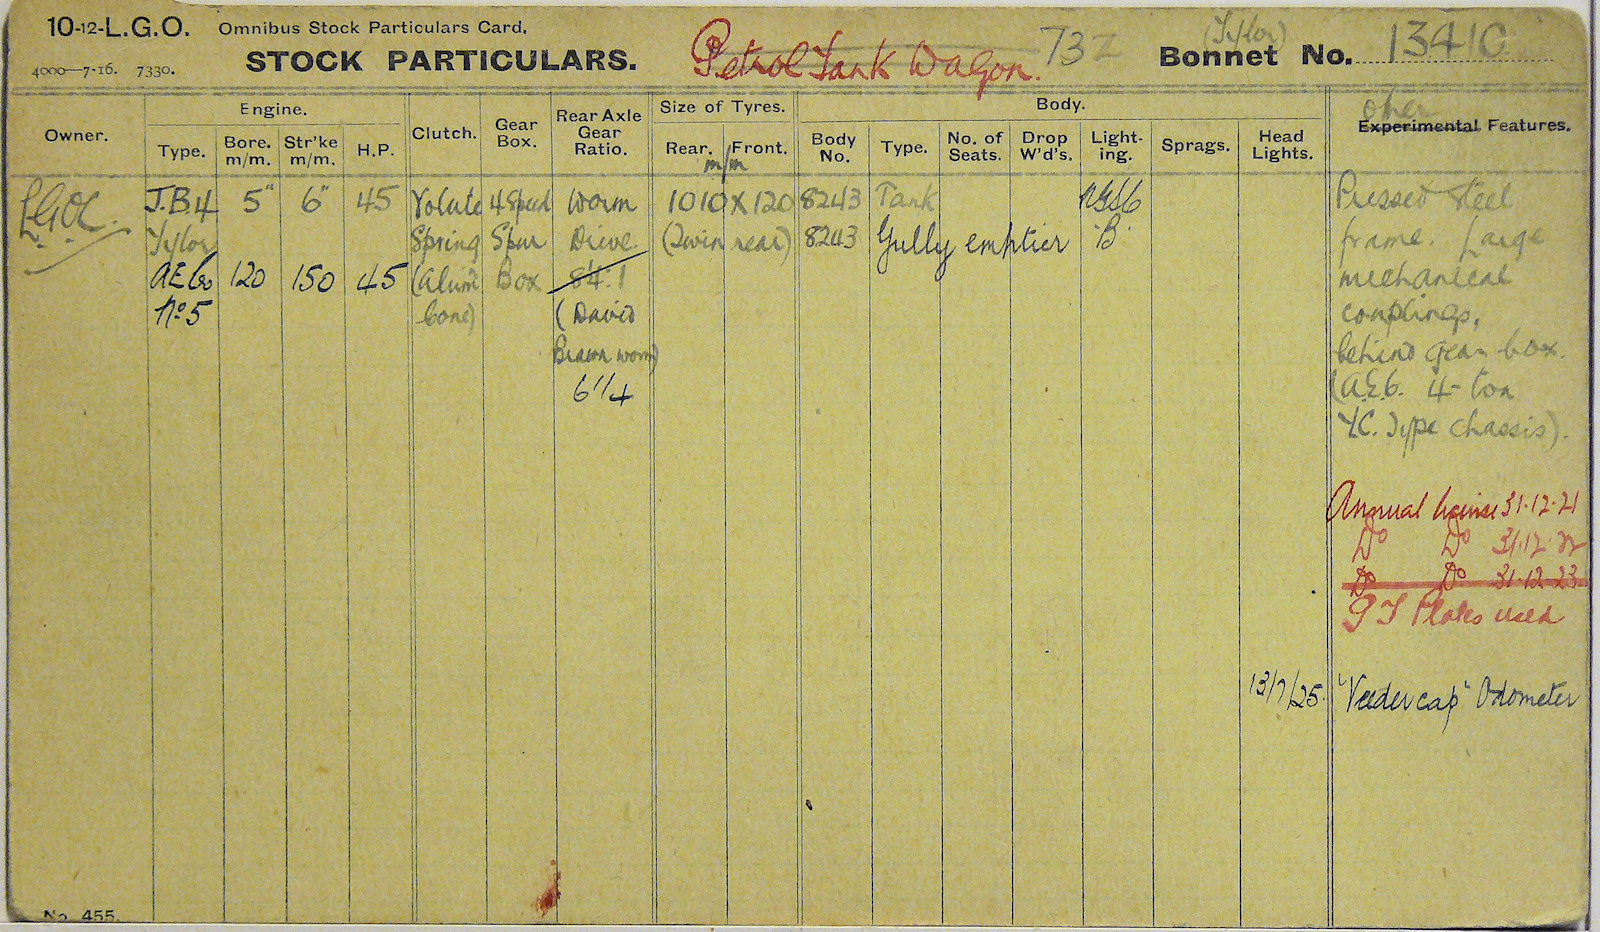 10-12-L.G.O. Omnibus Stock Particulars Card.
4000—7-16. 7330.
STOCK PARTICULARS.
Petrol Tank Wagon.
73Z
(Tylor)
Bonnet No. 1341C
Owner.
Engine.
Type.
Bore. m/m.
Str'ke m/m.
H.P.
Clutch.
Gear Box.
Rear Axle Gear Ratio.
Size of Tyres.
Rear. Front.
m/m
Body.
Body No.
Type.
No. of Seats.
Drop W'd's.
Light-ing.
Sprags.
Head Lights.
other
Experimental Features.
LGOC.
J.B.4 5" 6" 45
Tylor
AECo 120 150 45
No 5
Volute
Spring
(Alum
Cone)
4 Speed
Spur
Box
Worm
Drive
8'4:1
(David
Brown worm)
6 1/4
1010 X 120
(Twin rear)
8243 Tank
8243 Gully emptier B.
Pressed Steel
frame. Large
mechanical
couplings,
behind gear box.
(A.E.C. 4-ton
YC. Type chassis).
Annual license 31.12.21
Do Do 31.12.22
Do Do 31.12.23
G F Plates used
13/7/25. "Veedercap" Odometer
No. 455.